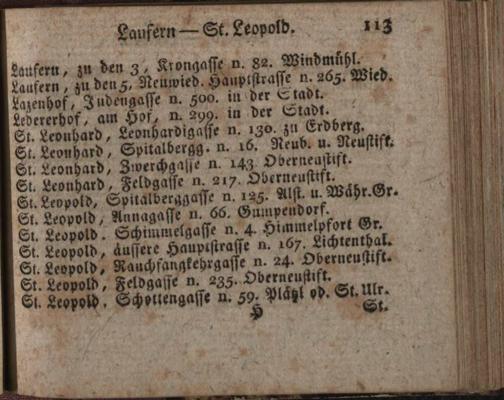 Laufern — St. Leopold. 113
Laufern, zu den 3, Krongasse n. 82. Windmühl.
Laufern, zu den 5, Neuwied. Hauptstrasse n. 265. Wied.
Lazenhof, Judengasse n. 500. in der Stadt.
Ledererhof, am Hof, n. 299. in der Stadt.
St. Leonhard, Leonhardigasse n. 130. zu Erdberg.
St. Leonhard, Spitalbergg. n. 16. Neub. u. Neustift.
St. Leonhard, Zwerchgasse n. 143 Oberneustift.
St. Leonhard, Feldgasse n. 217. Oberneustift.
St. Leopold, Spitalberggasse n. 125. Alst. u. Währ. Gr.
St. Leopold, Annagasse n. 66. Gumpendorf.
St. Leopold. Schimmelgasse n. 4. Himmelpfort Gr.
St. Leopold, äussere Hauptstrasse n. 167. Lichtenthal.
St. Leopold, Rauchfangkehrgasse n. 24. Oberneustift.
St. Leopold, Feldgasse n. 235. Oberneustift.
St. Leopold, Schottengasse n. 59. Plätzl od. St. Ulr.
H St.